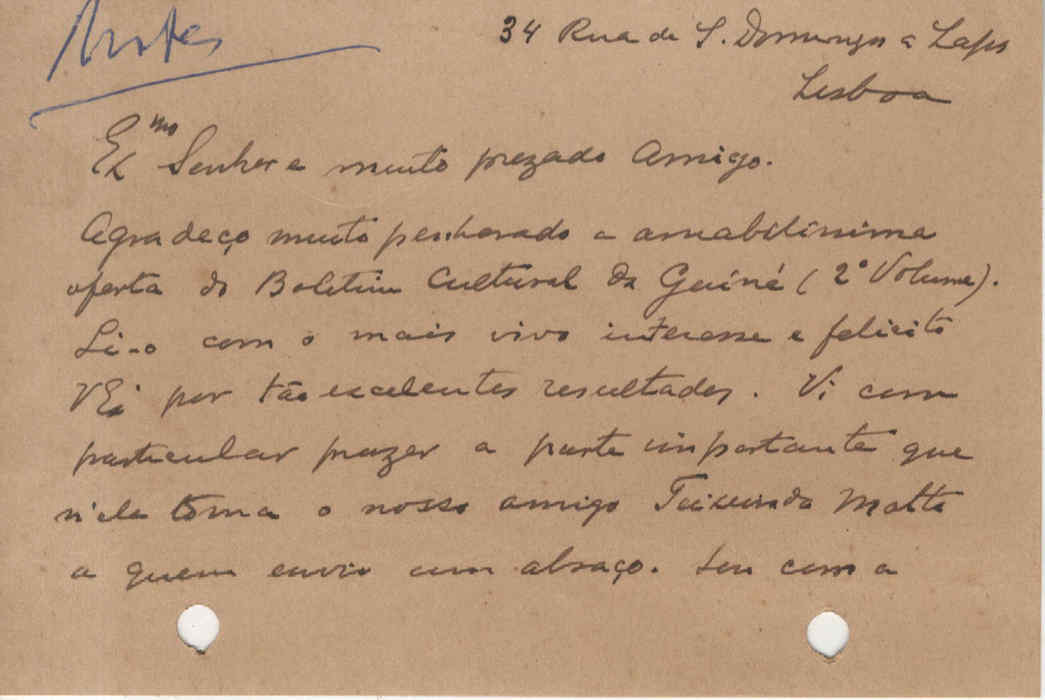 34 Rua de S. Domingos à Lapa
Lisboa
Exmo Senhor e muito prezado Amigo.
Agradeço muito penhorado a amabilíssima
oferta do Boletim Cultural da Guiné (2º Volume).
Li-o com o mais vivo interesse e felicito
VExª por tão excelentes resultados. Vi com
particular prazer a parte importante que
n'ele toma o nosso amigo Teixeira da Motta
a quem envio um abraço. Sou com a